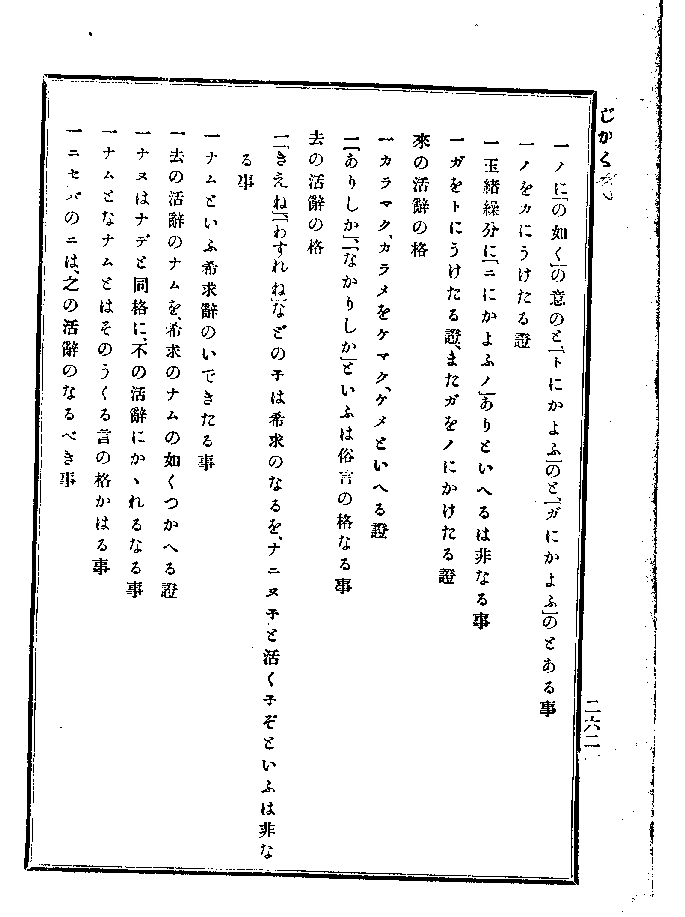 一ノに「の如く」の意のと、「トにかよふ」のと、「ガにかよふ」のとある事
一ノをカにうけたる證
一玉緒繰分に「ニにかよふノ」ありといへるは非なる事
一ガをトにうけたる證、またガをノにかけたる證
來の活辭の格
一カラマク、カラメをケマク、ケメといへる證
一「ありしか」、「なかりしか」といふは俗言の格なる事
去の活辭の格
一「きえね」「わすれね」などの子は希求のなるを、ナニヌ子と活く子ぞといふは非な
る事
一ナムといふ希求辭のいできたる事
一去の活辭のナムを、希求のナムの如くつかへる證
一ナヌはナデと同格に、不の活辭にかゝれるなる事
一ナムとなナムとはそのうくる言の格かはる事
一ニセバのニは、之の活辭のなるべき事
二六二